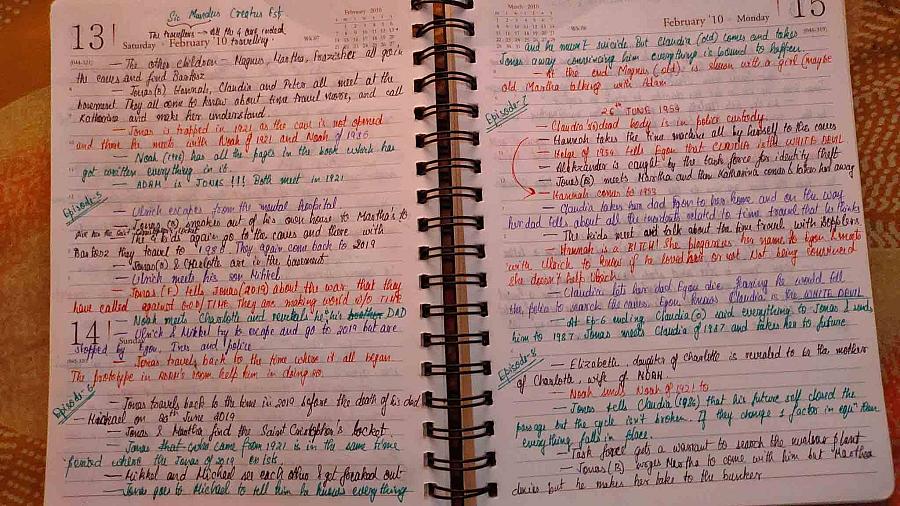 Sic Mundus Creatus Est
The travellers → All the 4 are indeed travelling
February 2010
13
Saturday February '10
Wk 07
(044-321)
— The other children - Magnus, Martha, Franziska all go in
the caves and find Bartosz
— Jonas(B) Hannah, Claudia and Peter all meet at the
basement. They all come to know about time travel more, and call
Katharina and make her understand.
— Jonas is trapped in 1921 as the cave is not opened
and there he meets with Noah of 1921 and Noah of
— Noah has all the pages in the book which has
got written everything in it.
— ADAM is JONAS !!! Both meet in 1921
Episode-5
— Ulrich escapes from the mental hospital.
— Jonas(B) sneakes out of his own house to Martha's to
give her the
— The 4 kids again go to the caves and there with
Bartosz they travel to 1987. They again come back to 2019
— Jonas(B) & Charlotte are in the basement
— Ulrich meets his son Mikkel.
— Jonas (F) tells Jonas (2019) about the war that they
have called against GOD/TIME. They are making world w/o TIME
— Noah meets Charlotte and reveals he's his DAD
14
Sunday
— Ulrich & Mikkel try to escape and go to 2019 but are
stopped by Egon, Ines and police
— Jonas travels back to the time where it all began
The prototype in room help him in doing so.
Episode-6
— Jonas travels back to the time in 2019 before the death of his dad
— Michael on 20th June 2019
— Jonas & Martha find the Saint Cristopher's locket
— Jonas that came from 1921 is in the same time
period where the Jonas of 2019 exists
— Mikkel and Michael see each other & get freaked out
— Jonas goes to Michael to tell him he knows everything
March 2010
Wk 08
February '10 - Monday
15
(046-319)
and he musn't suicide. But Claudia (old) comes and takes
Jonas away convincing him everything is bound to happen.
— At the end Magnus (old) is shown with a girl (maybe
old Martha talking with Adam
Episode-7
26th JUNE 1954
— Claudia's dead body is in police custody
— Hannah takes the time machine all by himself to the caves
— Helge of 1954 tells Egon that CLAUDIA is the WHITE DEVIL
— Aleksander is caught by the task force for identity theft
— Jonas(B) meets Martha and then Katharina comes & taken her away
— Hannah comes to 1953
— Claudia takes her dad Egon to her home and on the way
her dad tells about all the incidents related to time travel that he thinks
— The kids meet and talk about the time travel with Dopplers
— Hannah is a BITCH! She plagarises her name to Egon & meets
with Ulrich to know if he loved her or not. Not being convinced
she doesn't help Ulrich.
— Claudia lets her dad Egon die, fearing he would tell
the police to search the caves. Egon knows Claudia is the WHITE DEVIL
— At Ep-6 ending Claudia(o) said everything to Jonas & sends
him to 1987. Jonas meets Claudia of 1987 and takes her to future
Episode-8
— Elizabeth, daughter of Charlotte is revealed to be the mother
of Charlotte, wife of NOAH.
— Noah sends Noah of 1921 to
— Jonas tells Claudia (1986) that his future self closed the
passage but the cycle isn't broken. If they change 1 factor in eqn then
everything falls in place.
— Task force gets a warrant to search the nuclear plant
— Jonas(B) urges Martha to come with him but Martha
denies but he makes her take to the bunker